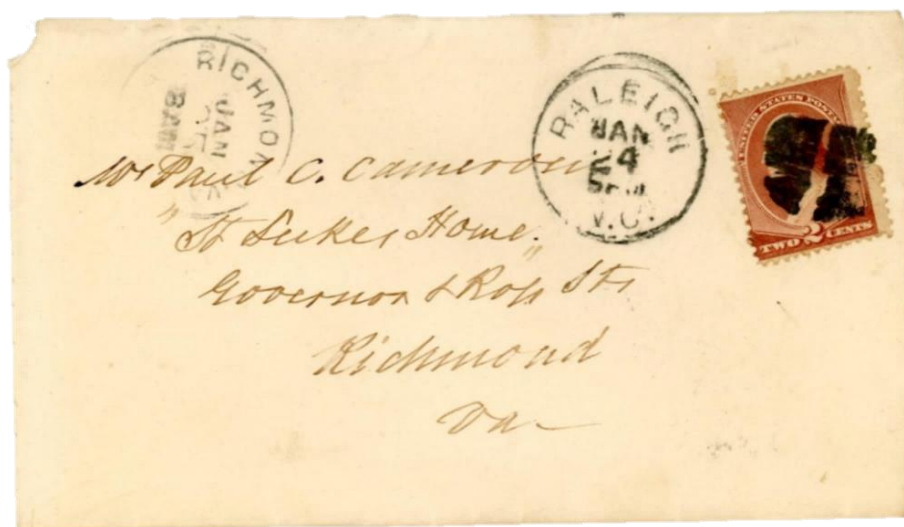 RICHMOND
JAN
RALEIGH
JAN
24
5 PM
N.C.
UNITED STATES POSTAGE
TWO 2 CENTS
Mr Paul C. Cameron
"St Lukes Home"
Governor & Ross Sts
Richmond
Va